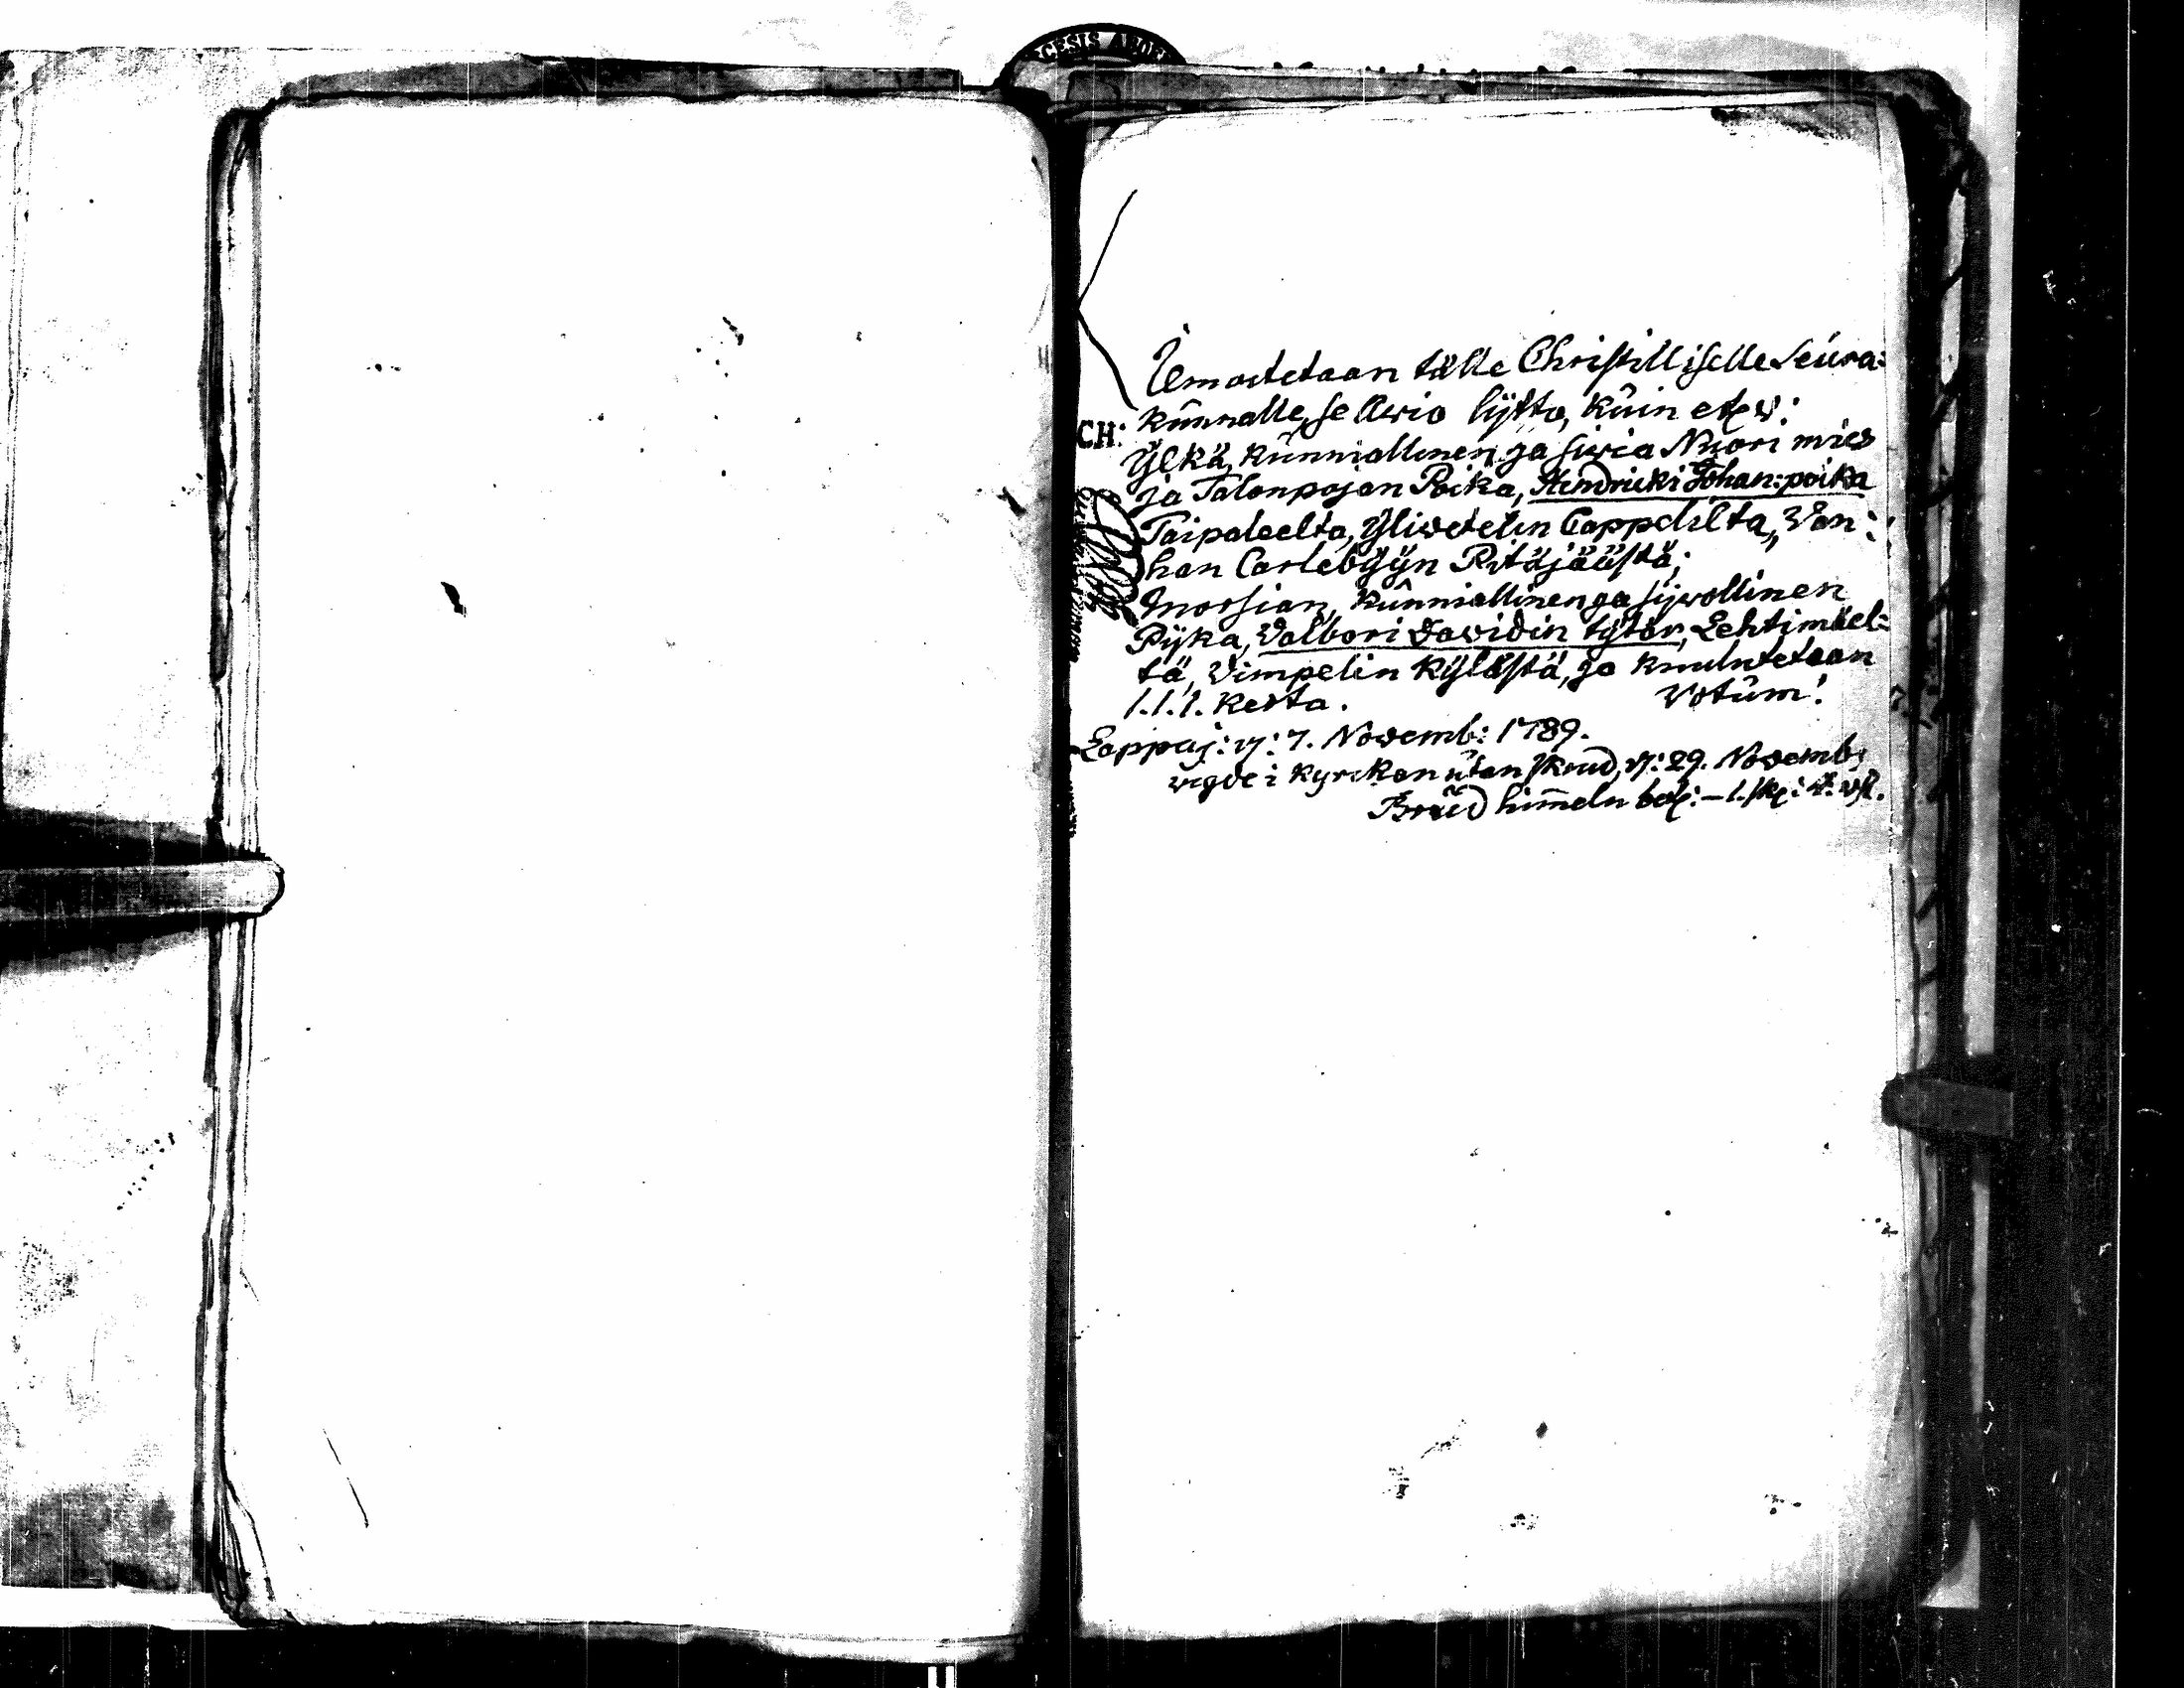 CESIS ABOEN
Ilmoitetaan tälle Christilliselle Seura:
kunnalle, se Awio lijtto, kuin
CH:
Ylkä, kunniallinen ja siwiä Nuori mies
ja Talonpojan Poika, Hendricki Johan:poika
Taipaleelta, Yliwetelin Cappelilta, Van:
han Carlebyyn Pitäjäästä;
Morsian, kunniallinen ja sijwollinen
Pijka, Valbori Davidin tytär, Lehtimäel:
tä, Vimpelin kylästä, ja kuulutetaan
1.1.1. kerta. Votum!
Lappaj: 7. Novemb: 1789.
wigde i kyrckan utan skrud, 29. Novemb:
Brud himeln